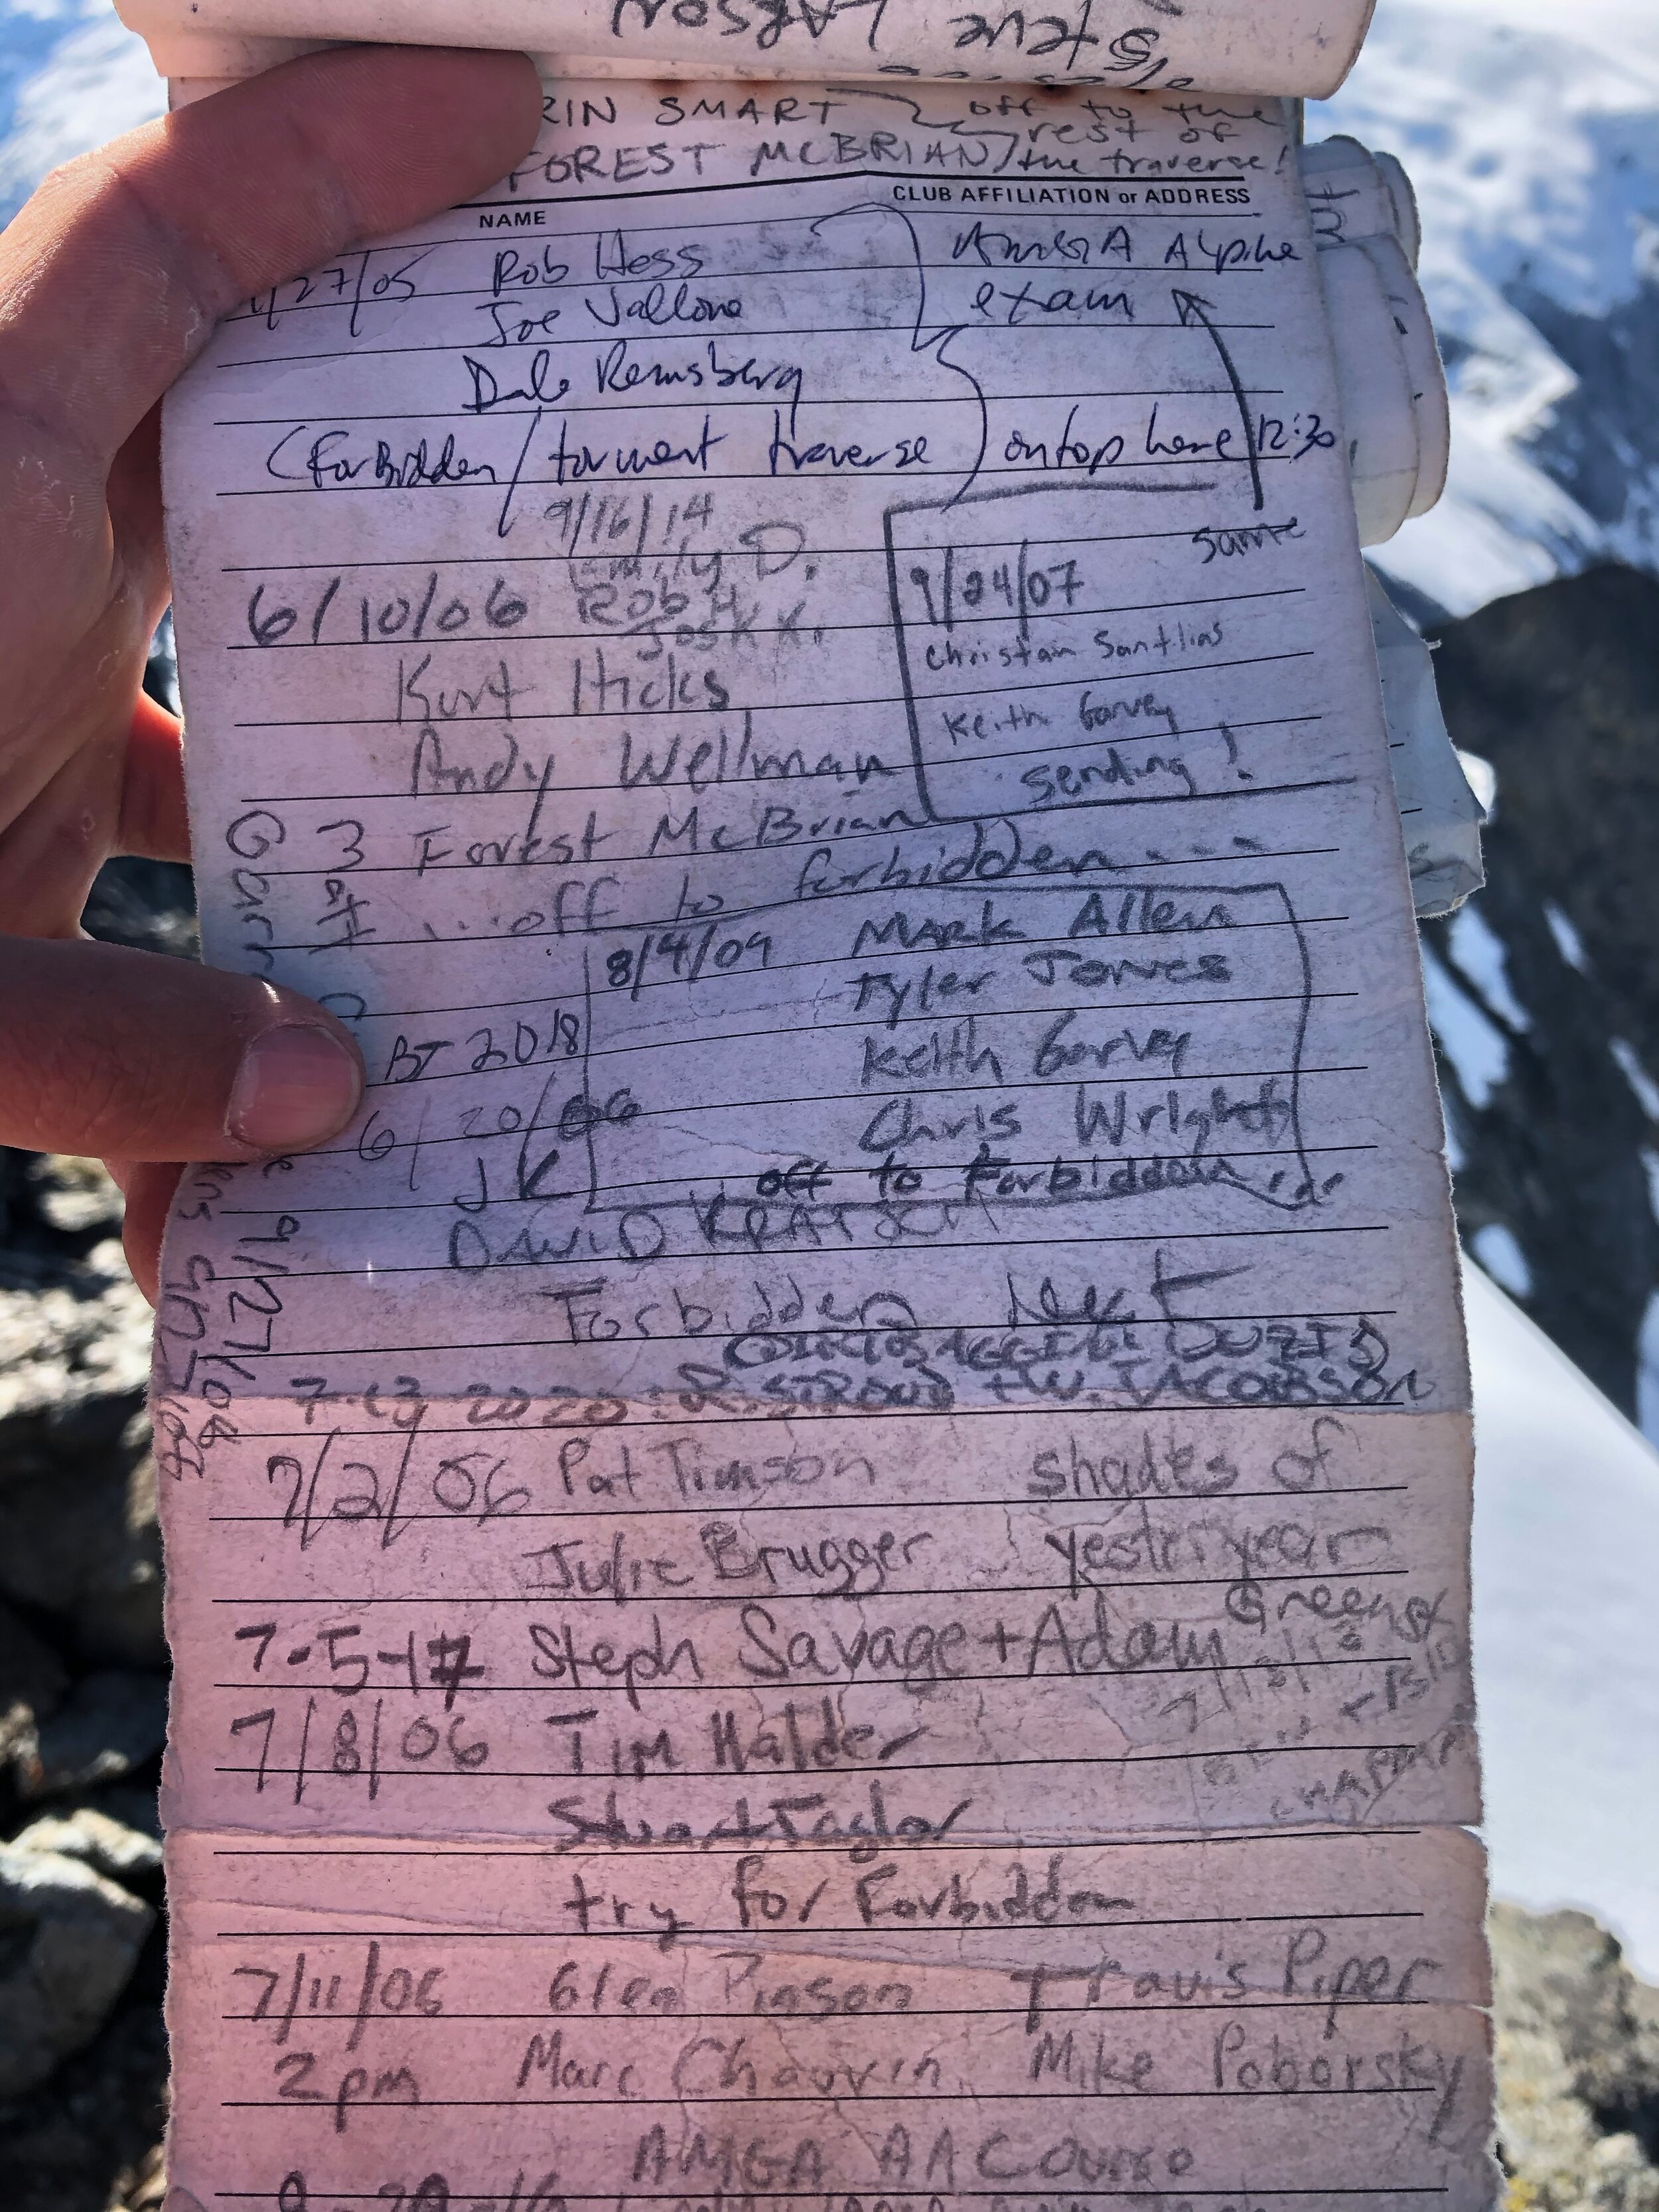 Steve Larson
RIN SMART off to the
FOREST MCBRIAN rest of
the traverse!
NAME CLUB AFFILIATION or ADDRESS
/27/05 Rob Hess AMGA Alpine
Joe Vallone exam
Dale Remsberg
(Forbidden/torment traverse) on top here 12:30
9/16/14
Emily D.
Rob H
Josh K.
6/10/06
Kurt Hicks
Andy Wellman
Forest McBrian
...off to forbidden....
same
9/24/07
Christian Santelices
Keith Garvey
sending!
8/4/09 Mark Allen
Tyler Jones
Keith Garvey
Chris Wright
off to Forbidden...
BT 2018
6/20/06
J K
DAVID
Forbidden Next
9/27/06
7-13-2020: R. STROUD + W. JACOBSON
7/2/06 Pat Timson shades of
Julie Brugger yesteryear
7-5-17 Steph Savage + Adam
7/8/06 Tim Halder
Stuart Taylor
try for Forbidden
CHAPMAN
7/11/06 Glen Pinson Travis Piper
2pm Marc Chauvin Mike Poborsky
AMGA AAC Course